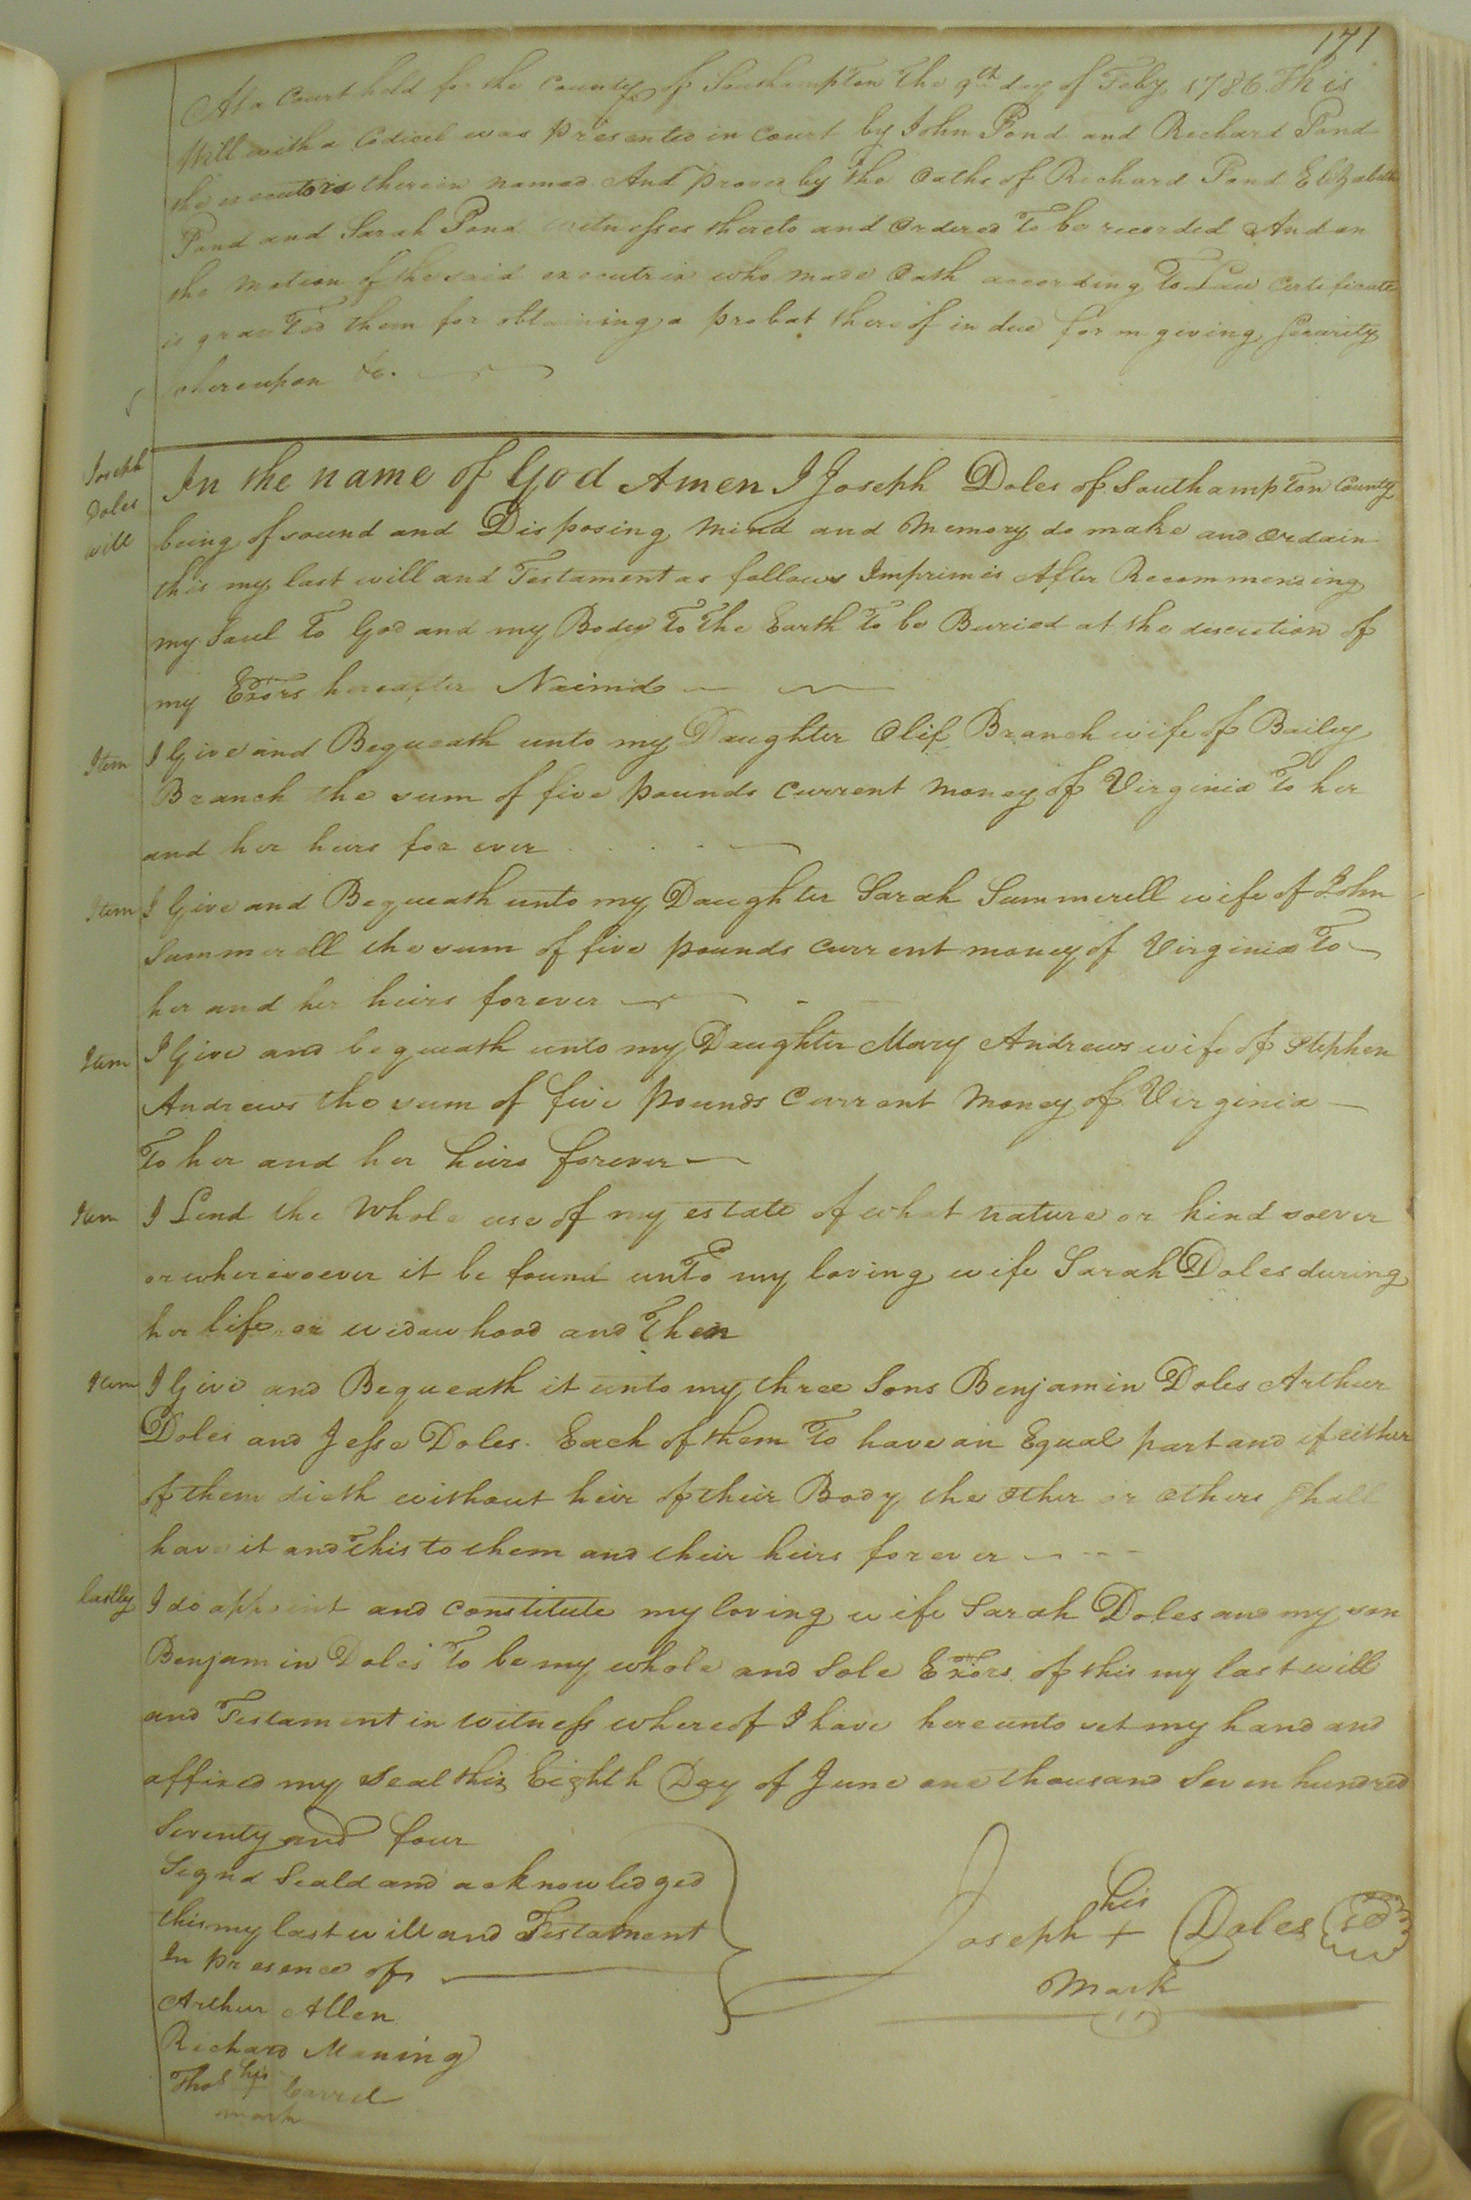 171
At a Court held for the County of Southampton the 9th day of Feby 1786. This
Will with a Codicel was presented in Court by John Pond and Richard Pond
the executors therein named And proved by the Oaths of Richard Pond Elizabeth
Pond and Sarah Pond witnesses thereto and Ordered To be recorded And on
the Motion of the said executrix who made Oath according To Law Certificate
is granted them for obtaining a probat thereof in due form giving Security
whereupon &c.
Joseph
Doles
will
In the name of God Amen I Joseph Doles of Southampton County
being of sound and Disposing Mind and Memory do make and Ordain
this my last will and Testament as follows Imprimis After Recommending
my Soul To God and my Body To The Earth To be Buried at the discretion of
my Exors hereafter Naimid
Item I Give and Bequeath unto my Daughter Olif Branch wife of Bailey
Branch the sum of five pounds Current Money of Virginia To her
and her heirs for ever
Item I Give and Bequeath unto my Daughter Sarah Summerell wife of John
Summerell the sum of five pounds Current money of Virginia To
her and her heirs forever
Item I Give and bequeath unto my Daughter Mary Andrews wife of Stephen
Andrews the sum of five pounds Current Money of Virginia
To her and her heirs forever
Item I Lend the Whole use of my estate of what nature or kind soever
or wheresoever it be found unTo my loving wife Sarah Doles during
her life or widowhood and Then
Item I Give and Bequeath it unto my three Sons Benjamin Doles Arthur
Doles and Jesse Doles. Each of them To have an Equal part and if either
of them dieth without heir of their Body the Other or Others Shall
have it and This to them and their heirs forever
lastly I do appoint and Constitute my loving wife Sarah Doles and my son
Benjamin Doles To be my whole and Sole Exors of this my last will
and Testament in witness whereof I have hereunto set my hand and
affixed my Seal this Eighth Day of June one thousand Seven hundred
Seventy and four
Signd Seald and acknowledged
this my last will and Testament
In presence of
Arthur Allen
Richard Maning
Thos his + Carrel
mark
his
Joseph + Doles
Mark